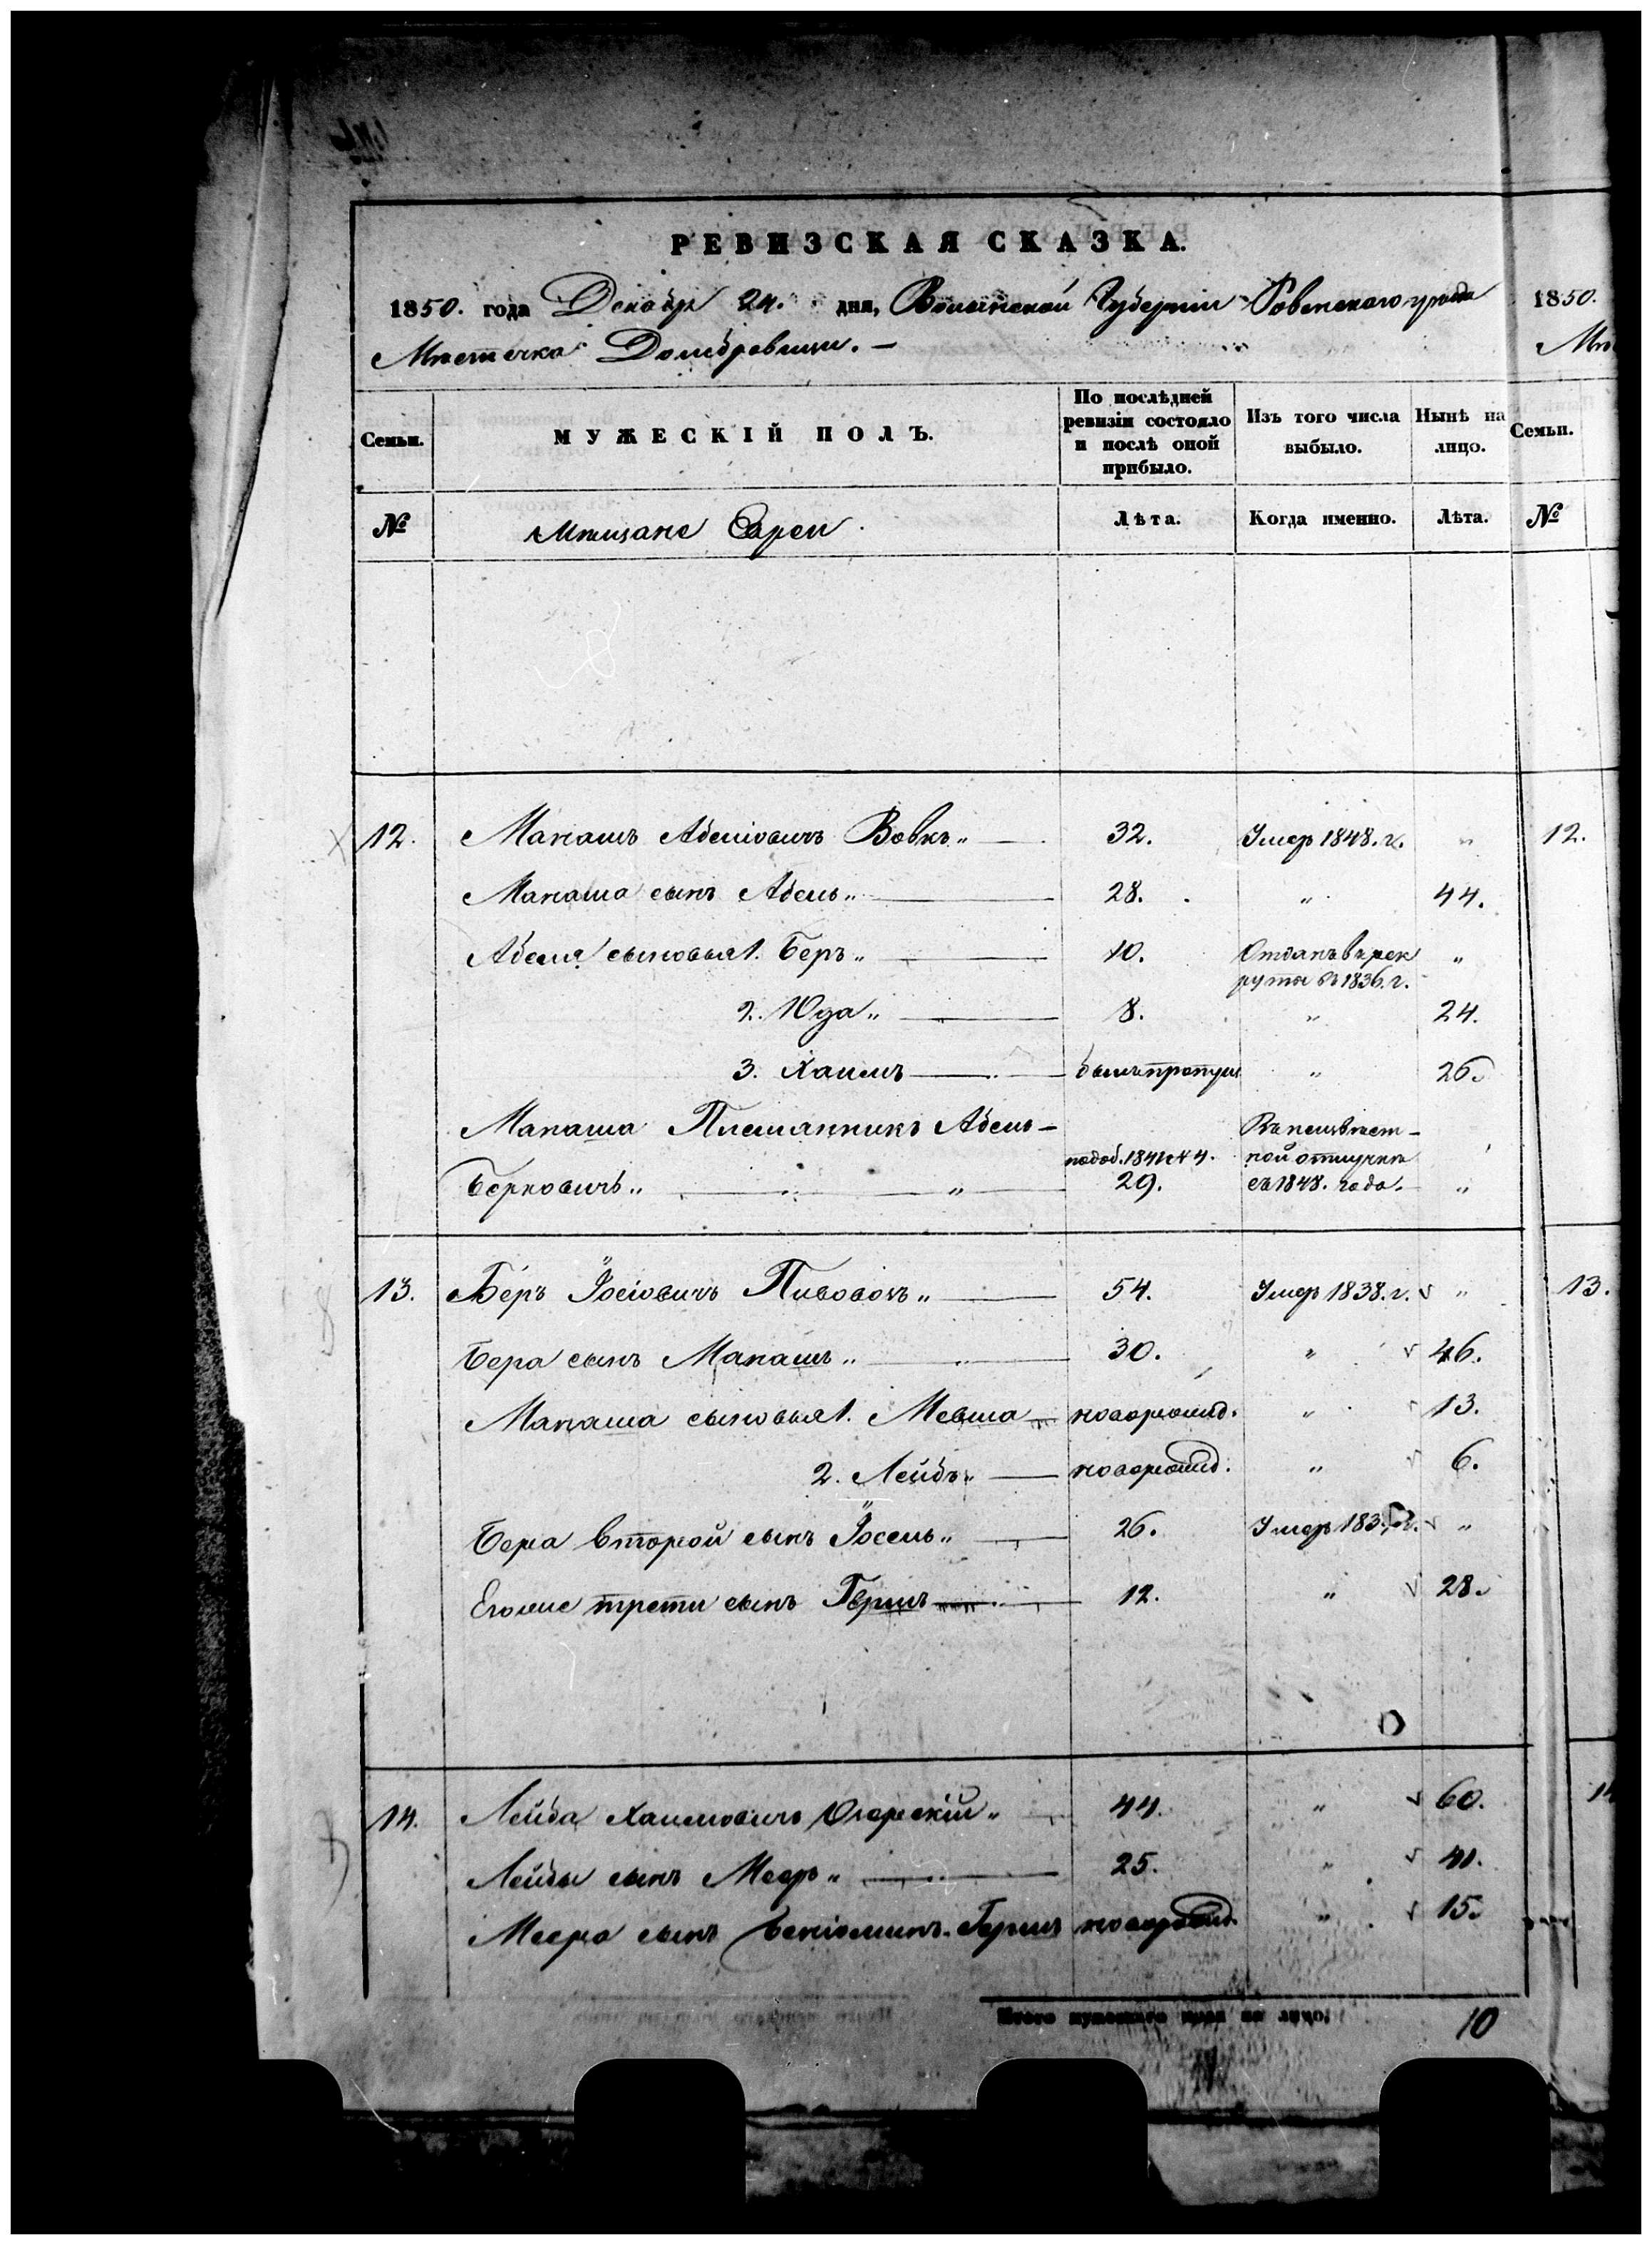 РЕВИЗСКАЯ СКАЗКА.
1850. года Декабр 24. дня, Волынской Губернии Ровенского уезда
1850.
Мѣстечка Домбровицы. —
Семьи.
МУЖЕСКІЙ ПОЛЪ.
По послѣдней ревизіи состояло и послѣ оной прибыло.
Изъ того числа выбыло.
Нынѣ на лицо.
Семьи.
№
Мѣщане Евреи
Лѣта.
Когда именно.
Лѣта.
№
12. Манашъ Абелiовичъ Вовкъ „ 32. Умер 1848. г. „ 12.
Манаша сынъ Абель „ 28. „ 44.
Абеля сыновья 1. Беръ „ 10. Отданъ въ рек „
руты въ 1836. г.
2. Юда „ 8. „ 24.
3. Хаимъ былъ пропущ „ 26.
Манаша Племянникъ Абель — Въ неизвѣст –
1844. ной отлучкѣ
Берковичъ „ „ 29. съ 1848. года. „
13. Беръ Іосiовичъ Пивовохъ „ 54. Умер 1838. г. „ 13.
Бера сынъ Манашъ „ 30. „ 46.
Манаша сыновья 1. Мевша новорожд. „ 13.
2. Лейбъ „ новорожд. „ 6.
Бера второй сынъ Іосель „ 26. Умер „
Его же трети сынъ Гершъ 12. „ 28.
14. Лейба Хаимовичъ 44. „ 60. 14
Лейбы сынъ Меер „ 25. „ 41.
Меера сынъ Бенiоминъ-Гершъ новорожд. „ 15.
Итого мужескаго пола на лицо: 10